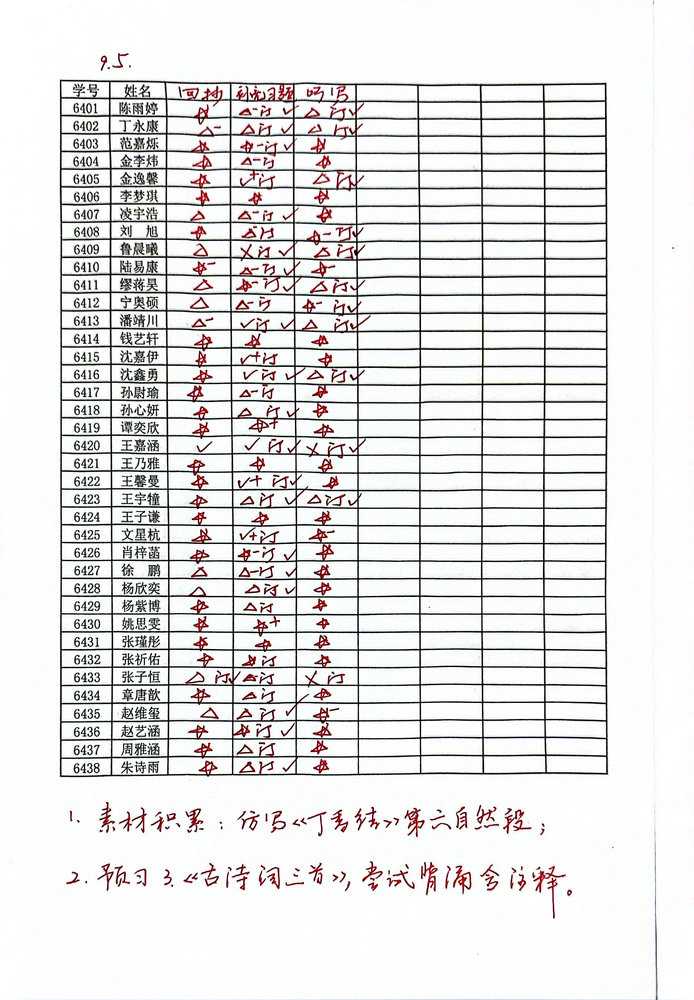 9.5.
学号 姓名 回抄 补充习题 听写
6401 陈雨婷 ☆ △-订✓ △订✓
6402 丁永康 △- △订✓ △订✓
6403 范嘉烁 ☆ ☆-订✓ ☆
6404 金李炜 ☆ △-订 ☆
6405 金逸馨 ☆ ✓+订 △订✓
6406 李梦琪 ☆ ☆ ☆
6407 凌宇浩 △ △-订✓ ☆
6408 刘旭 ☆ △订 ☆-订✓
6409 鲁晨曦 △ ×订✓ △订✓
6410 陆易康 ☆- △-订✓ ☆-
6411 缪蒋昊 △ ☆-订✓ △订✓
6412 宁奥硕 △ △-订 ☆-订✓
6413 潘靖川 △- ✓订✓ △订✓
6414 钱艺轩 ☆ ☆ ☆
6415 沈嘉伊 ☆ ✓+订 ☆
6416 沈鑫勇 ☆ ✓订✓ △订✓
6417 孙尉瑜 ☆ △-订 ☆
6418 孙心妍 ☆ △订✓ ☆
6419 谭奕欣 ☆ ☆+ ☆
6420 王嘉涵 ✓ ✓订✓ ×订✓
6421 王乃雅 ☆ ☆ ☆
6422 王馨曼 ☆ ✓+订✓ ☆
6423 王宇犝 ☆ △订✓ △订✓
6424 王子谦 ☆ ☆ ☆
6425 文星杭 ☆ ✓+订 ☆-
6426 肖梓菡 ☆ ☆-订✓ ☆
6427 徐鹏 △ △-订✓ ☆
6428 杨欣奕 △ △订✓ ☆
6429 杨紫博 ☆ △订 ☆
6430 姚思雯 ☆ ☆+ ☆
6431 张瑾彤 ☆ ☆ ☆
6432 张祈佑 ☆ ☆订 ☆
6433 张子恒 △订✓ △订 ×订
6434 章唐歆 ☆ △订 ☆
6435 赵维玺 △ △订✓ ☆-
6436 赵艺涵 ☆ ☆订✓ ☆
6437 周雅涵 ☆ △订 ☆
6438 朱诗雨 ☆ △订✓ ☆
1. 素材积累：仿写《丁香结》第六自然段；
2. 预习3.《古诗词三首》，尝试背诵含注释。